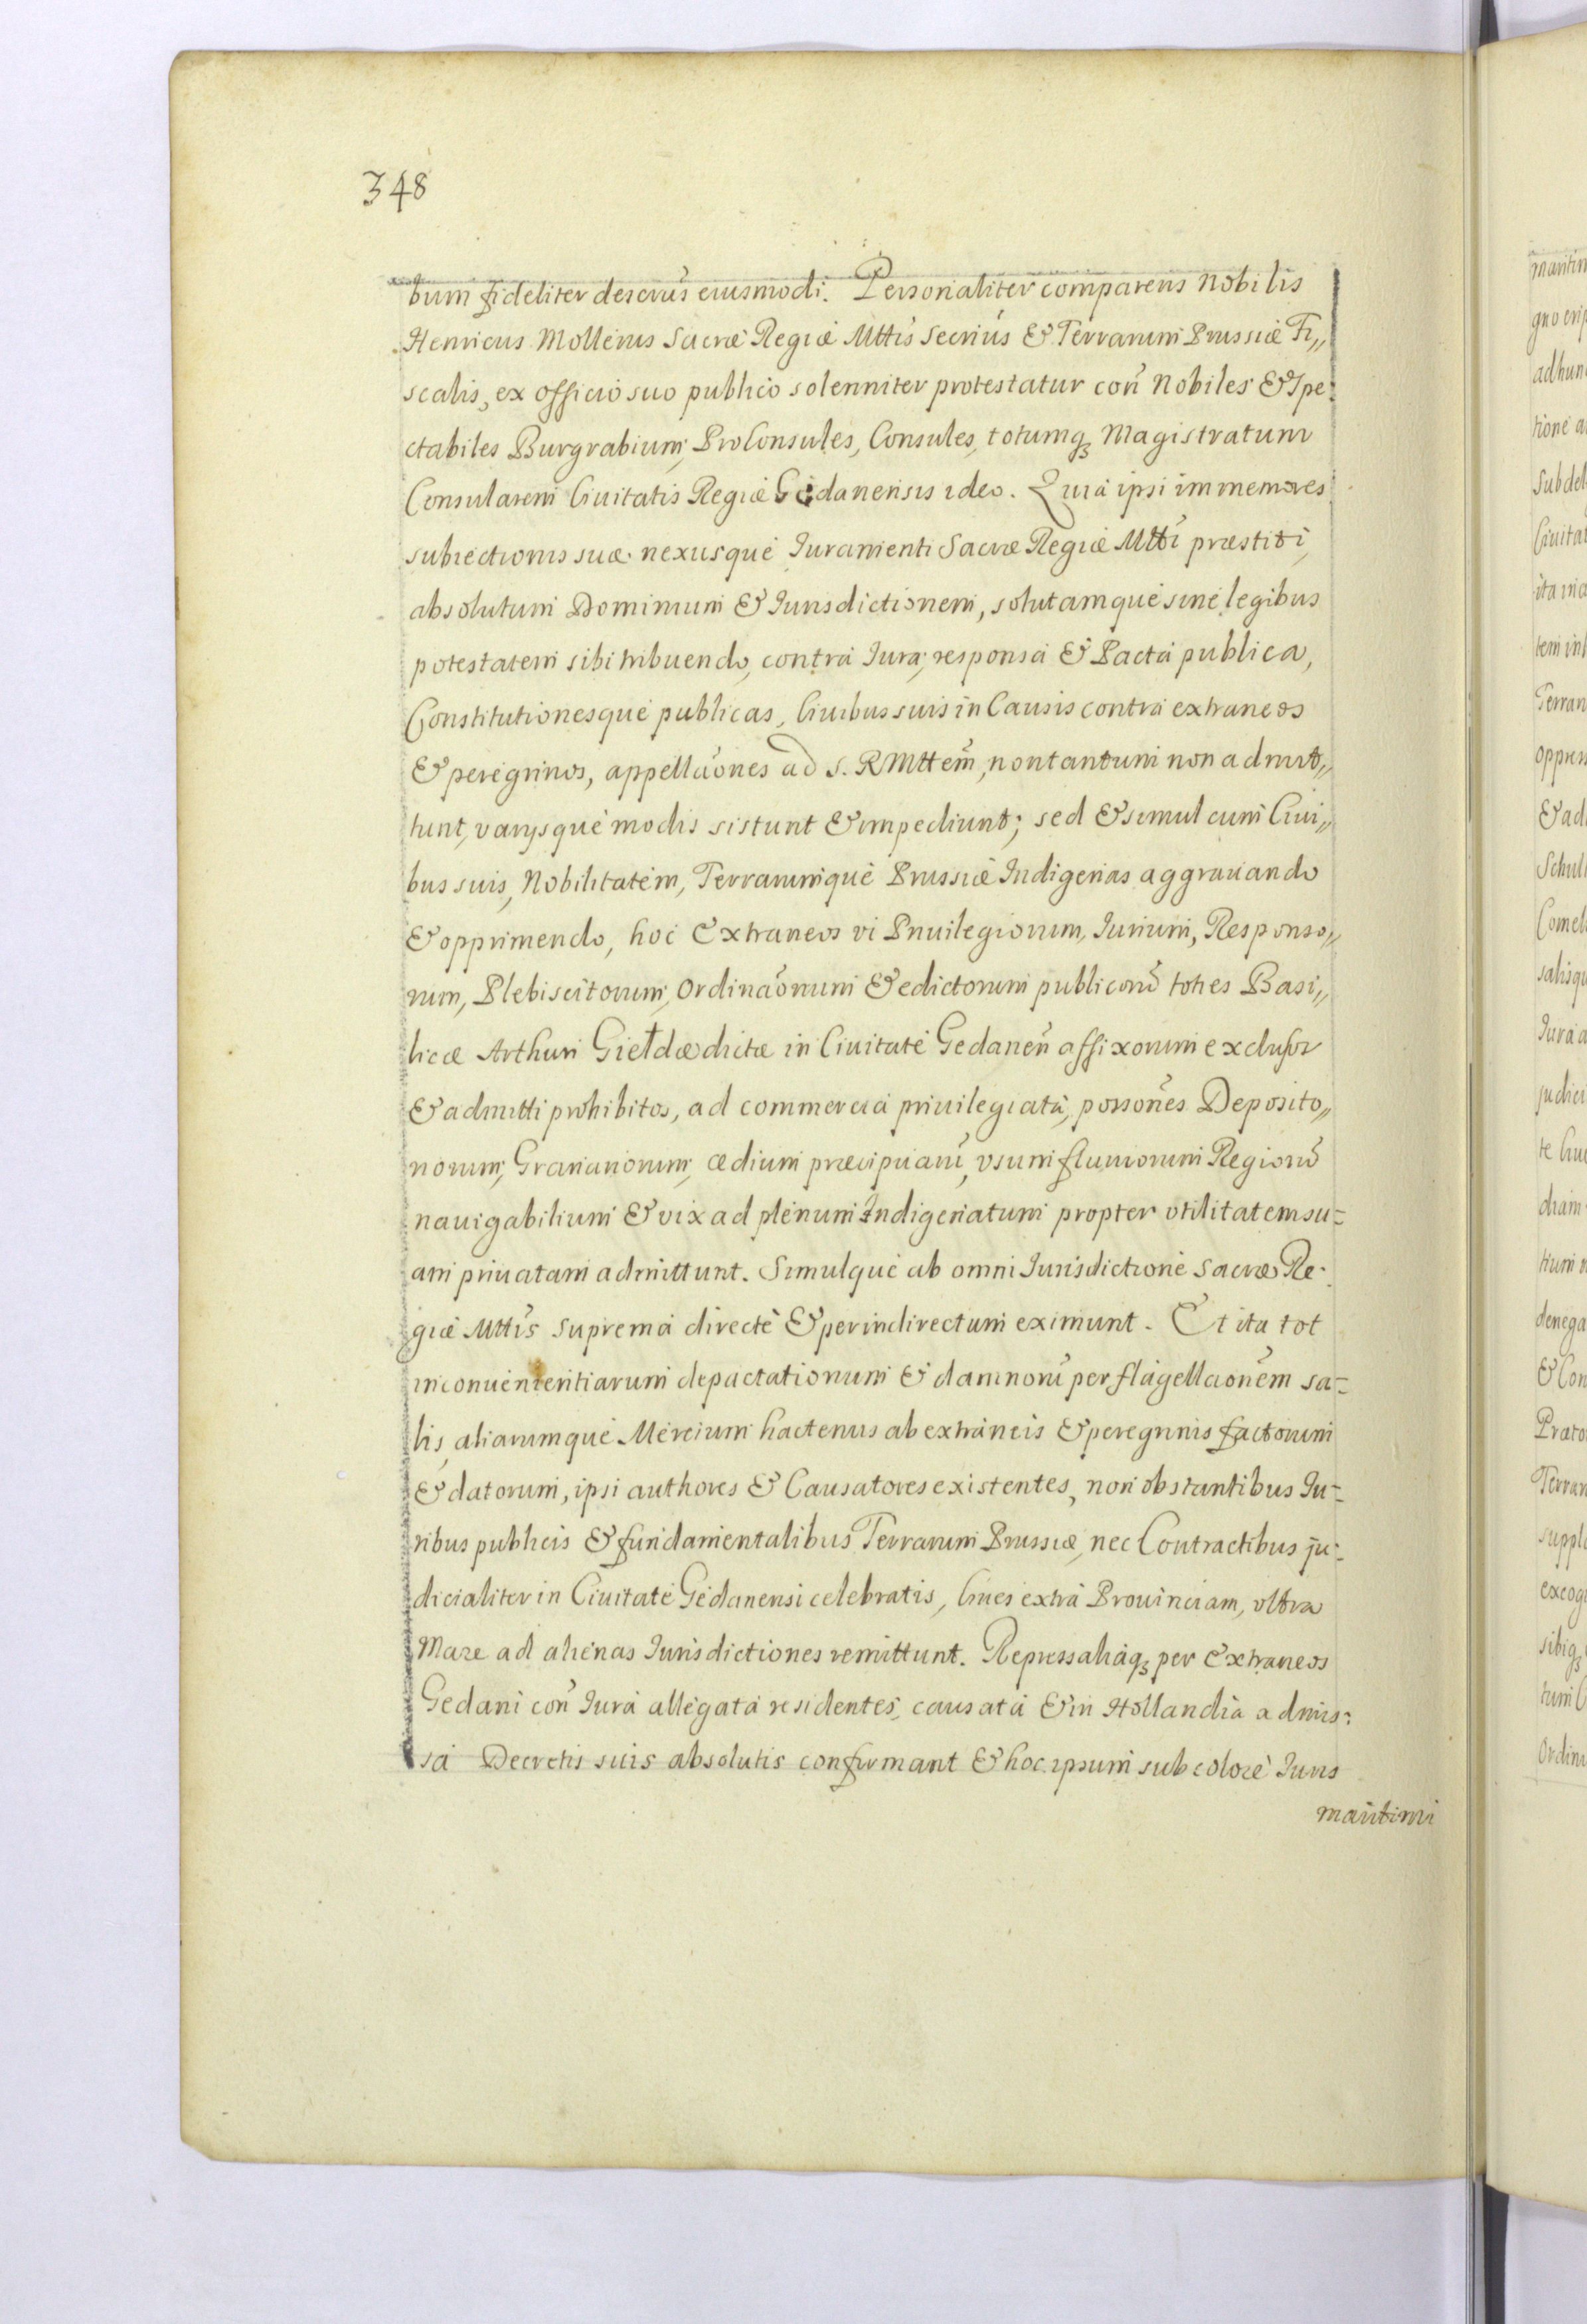 348
bum fideliter descrũs eiusmodi. Personaliter comparens Nobilis
Henricus Mollerus Sacræ Regiæ Mttis Secrĩus & Terrarum Prussiæ Fi„
scalis, ex officio suo publico solenniter protestatur coñ Nobiles & Spe:
ctabiles Burgrabium, ProConsules, Consules, totumq₃ Magistratum
Consularem Ciuitatis Regiæ Gedanensis ideo. Quia ipsi immemores
subiectionis suæ nexusque Iuramenti Sacræ Regiæ Mtti præstiti,
absolutum Dominium & Iurisdictionem, solutamque sine legibus
potestatem sibi tribuendo, contra Iura, responsa & Pacta publica,
Constitutionesque publicas, Ciuibus suis in Causis contra extraneos
& peregrinos, appellãones ad S. R Mttem̃, non tantum non admit„
tunt, varysque modis sistunt & impediunt; sed & simul cum Ciui„
bus suis, Nobilitatem, Terrarumque Prussiæ Indigenas aggrauando
& opprimendo, hoc Extraneos vi Priuilegiorum, Iurium, Responso„
rum, Plebiscitorum, Ordinãonum & edictorum publicorũ toties Basi„
licæ Arthuri Giełdæ dictæ in Ciuitate Gedaneñ affixorum exclusos
& admitti prohibitos, ad commercia priuilegiata, possoñes Deposito„
riorum, Granariorum, ædium præcipuarũ, vsum fluuiorum Regiorũ
nauigabilium & vix ad plenum Indigenatum propter vtilitatem su=
am priuatam admittunt. Simulque ab omni Iurisdictione Sacræ Re:
giæ Mttis Suprema directe & per indirectum eximunt. Et ita tot
inconuenientiarum depactationum & damnorũ per flagellãonem sa=
lis, aliarumque Mercium hactenus ab extraneis & peregrinis factorum
& datorum, ipsi authores & Causatores existentes, non obstantibus Iu=
ribus publicis & fundamentalibus Terrarum Prussiæ, nec Contractibus ju:
dicialiter in Ciuitate Gedanensi celebratis, Ciues extra Prouinciam, vltra
Mare ad alienas Iurisdictiones remittunt. Repressaliaq₃ per Extraneos
Gedani coñ Iura allegata residentes, causata & in Hollandia admis:
sa Decretis suis absolutis confirmant & hoc ipsum sub colore Iuris
maritimi